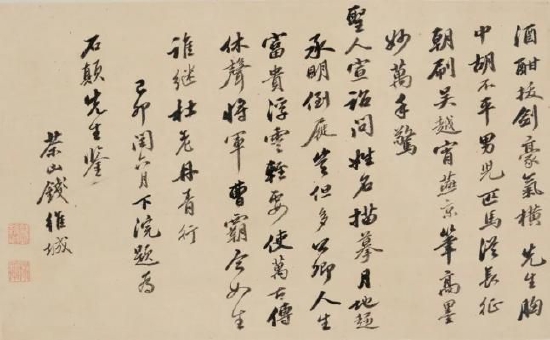 酒酣拔劍豪氣橫 先生胸
中胡不平男兒匹馬從長征
朝刷吳越宵燕京筆高墨
妙萬手驚
聖人宣詔問姓名描摹月地趨
承明倒屣豈但多公卿人生
富貴浮雲輕要使萬古傳
休聲將軍曹霸如生
誰繼杜老丹青行
己卯閏六月下浣題為
石顛先生鑒
茶山錢維城